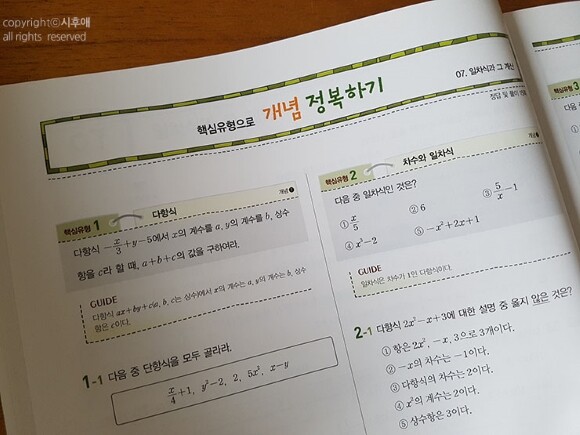 copyrightⓒ시후애
all rights reserved
핵심유형으로 개념 정복하기
07. 일차식과 그 계산
정답 및 풀이
핵심유형 1 다항식
개념 ❶
다항식 -x/3+y-5에서 x의 계수를 a, y의 계수를 b, 상수
항을 c라 할 때, a+b+c의 값을 구하여라.
GUIDE
다항식 ax+by+c(a, b, c는 상수)에서 x의 계수는 a, y의 계수는 b, 상수
항은 c이다.
1-1 다음 중 단항식을 모두 골라라.
x/4+1, y²-2, 2, 5x³, x-y
핵심유형 2 차수와 일차식
개념
다음 중 일차식인 것은?
① x/5 ② 6 ③ 5/x-1
④ x³-2 ⑤ -x²+2x+1
GUIDE
일차식은 차수가 1인 다항식이다.
2-1 다항식 2x²-x+3에 대한 설명 중 옳지 않은 것은?
① 항은 2x², -x, 3으로 3개이다.
② -x의 차수는 -1이다.
③ 다항식의 차수는 2이다.
④ x²의 계수는 2이다.
⑤ 상수항은 3이다.
핵심유형 3
다음